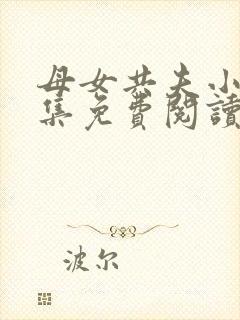 母女共夫小
集免費閱讀
波尔